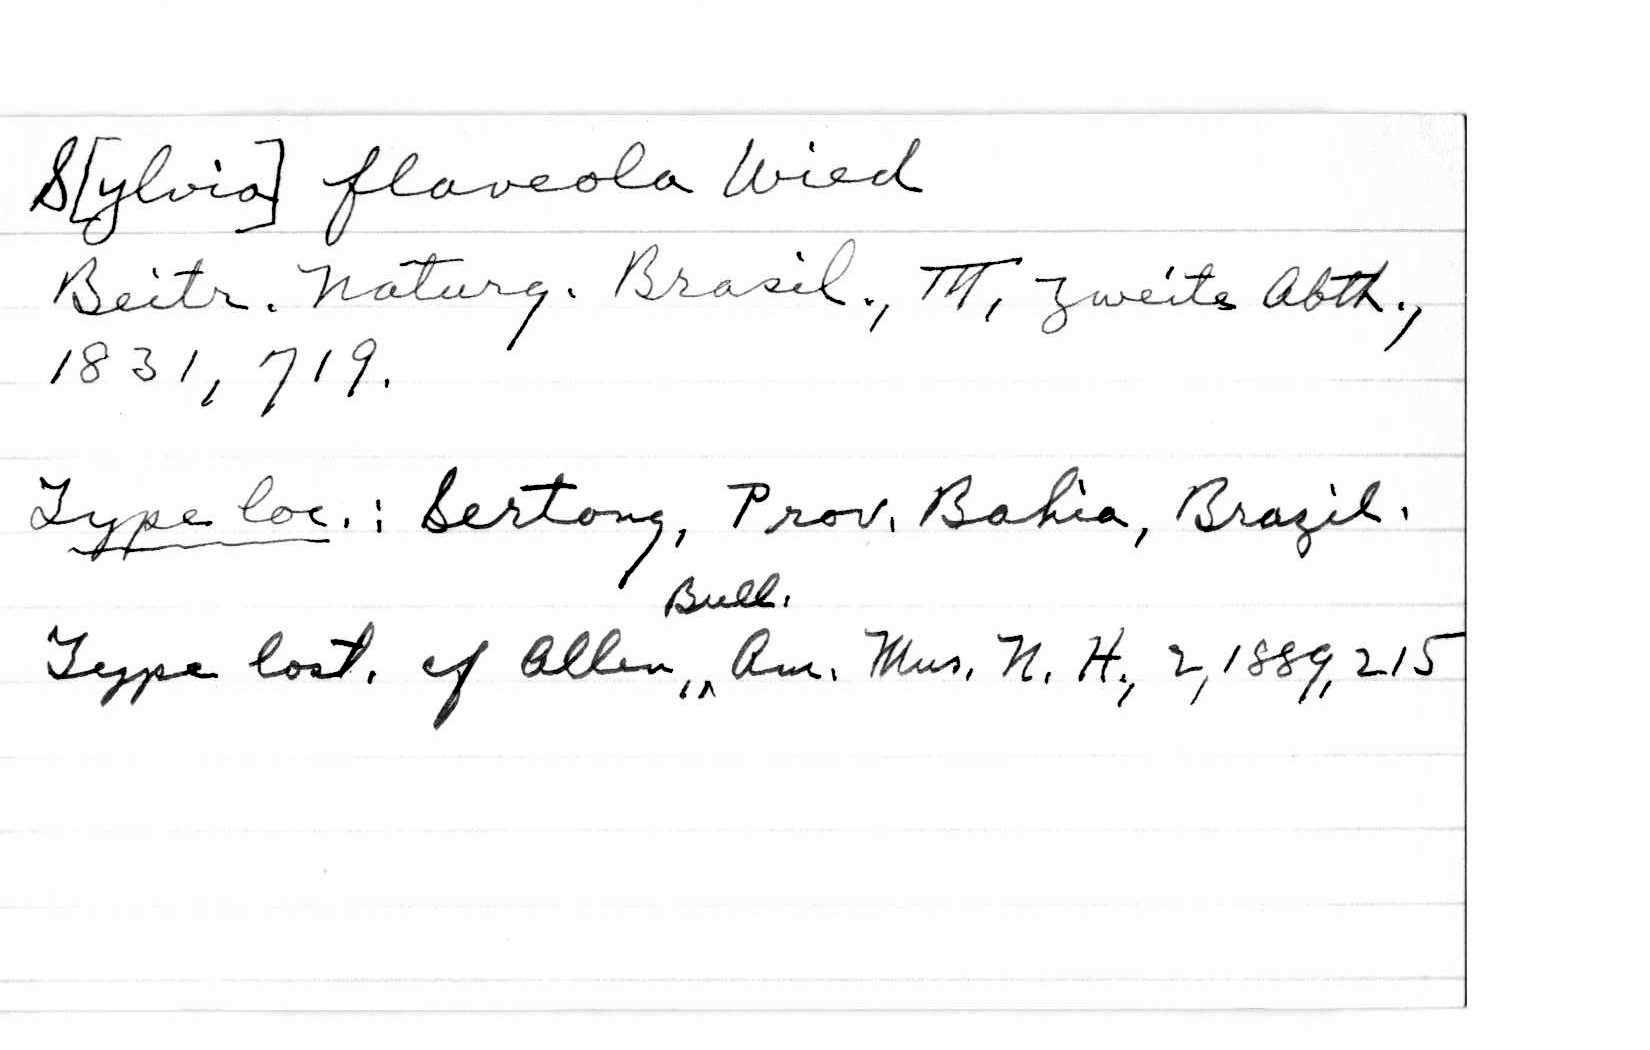 S[ylvia] flaveola Wied
Beitr. Naturg. Brasil., III, Zweite Abth.,
1831, 719.
Type loc.: Sertong, Prov. Bahia, Brazil.
Bull.
Type lost. cf Allen, ‸ Am. Mus. N. H., 2, 1889, 215